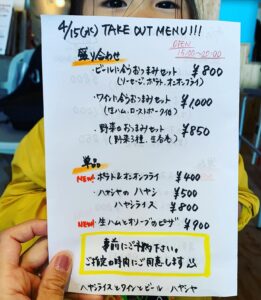 4/15(水) TAKE OUT MENU!!!
OPEN
15:00~20:00
盛り合わせ
・ビールに合うおつまみセット ¥800
(ソーセージ、ポテト、オニオンフライ)
・ワインに合うおつまみセット ¥1,000
(生ハム、ローストポーク他)
・野菜のおつまみセット ¥850
(野菜3種、豆合む)
単品
NEW ポテト&オニオンフライ ¥400
ハヤシヤのハヤシ ¥500
ハヤシライス ¥800
NEW 生ハムとオリーブのピザ ¥900
事前にご予約下さい。
ご指定の時間にご用意します
ハヤシライスとワインとビール ハヤシヤ